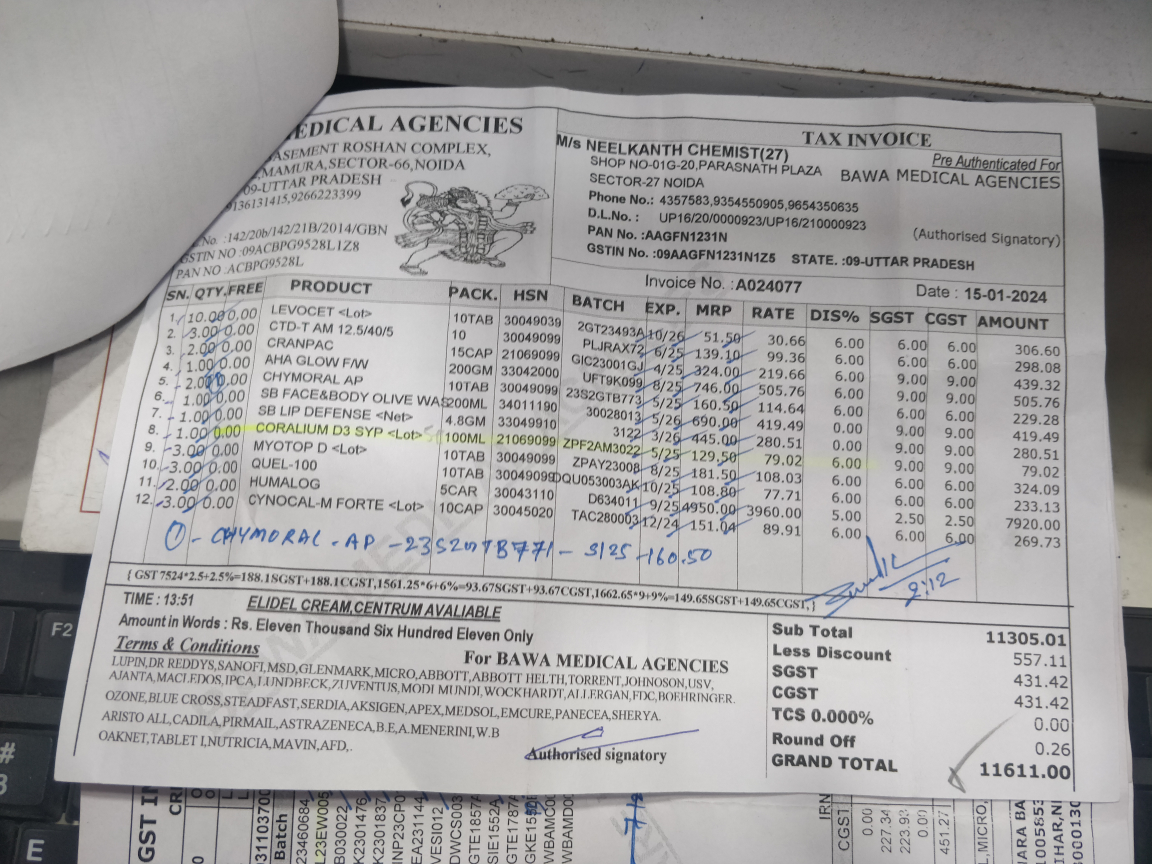 MEDICAL AGENCIES
BASEMENT ROSHAN COMPLEX,
MAMURA,SECTOR-66,NOIDA
09-UTTAR PRADESH
9136131415,9266223399
No. :142/20b/142/21B/2014/GBN
GSTIN NO :09ACBPG9528L1Z8
PAN NO :ACBPG9528L
TAX INVOICE
M/s NEELKANTH CHEMIST(27)
SHOP NO-01G-20,PARASNATH PLAZA
SECTOR-27 NOIDA
Phone No.: 4357583,9354550905,9654350635
D.L.No. : UP16/20/0000923/UP16/210000923
PAN No. :AAGFN1231N
GSTIN No. :09AAGFN1231N1Z5 STATE. :09-UTTAR PRADESH
Pre Authenticated For
BAWA MEDICAL AGENCIES
(Authorised Signatory)
Invoice No. :A024077 Date : 15-01-2024
SN. QTY. FREE PRODUCT PACK. HSN BATCH EXP. MRP RATE DIS% SGST CGST AMOUNT
1. 10.00 0.00 LEVOCET <Lot> 10TAB 30049039 2GT23493A 10/26 51.50 30.66 6.00 6.00 6.00 306.60
2. 3.00 0.00 CTD-T AM 12.5/40/5 10 30049099 PLJRAX72 6/25 139.10 99.36 6.00 6.00 6.00 298.08
3. 2.00 0.00 CRANPAC 15CAP 21069099 GIC23001GJ 4/25 324.00 219.66 6.00 9.00 9.00 439.32
4. 1.00 0.00 AHA GLOW F/W 200GM 33042000 UFT9K099 8/25 746.00 505.76 6.00 9.00 9.00 505.76
5. 2.00 0.00 CHYMORAL AP 10TAB 30049099 23S2GTB773 5/25 160.50 114.64 6.00 6.00 6.00 229.28
6. 1.00 0.00 SB FACE&BODY OLIVE WAS 200ML 34011190 30028013 5/26 690.00 419.49 0.00 9.00 9.00 419.49
7. 1.00 0.00 SB LIP DEFENSE <Net> 4.8GM 33049910 3122 3/26 445.00 280.51 0.00 9.00 9.00 280.51
8. 1.00 0.00 CORALIUM D3 SYP <Lot> 100ML 21069099 ZPF2AM3022 5/25 129.50 79.02 6.00 9.00 9.00 79.02
9. 3.00 0.00 MYOTOP D <Lot> 10TAB 30049099 ZPAY23008 8/25 181.50 108.03 6.00 6.00 6.00 324.09
10. 3.00 0.00 QUEL-100 10TAB 30049099 DQU053003AK 10/25 108.80 77.71 6.00 6.00 6.00 233.13
11. 2.00 0.00 HUMALOG 5CAR 30043110 D634011 9/25 4950.00 3960.00 5.00 2.50 2.50 7920.00
12. 3.00 0.00 CYNOCAL-M FORTE <Lot> 10CAP 30045020 TAC280003 12/24 151.04 89.91 6.00 6.00 6.00 269.73
① - CHYMORAL - AP - 160.50
{ GST 7524*2.5+2.5%=188.1SGST+188.1CGST,1561.25*6+6%=93.67SGST+93.67CGST,1662.65*9+9%=149.65SGST+149.65CGST,}
9:12
TIME : 13:51 ELIDEL CREAM,CENTRUM AVALIABLE
Amount in Words : Rs. Eleven Thousand Six Hundred Eleven Only
Terms & Conditions For BAWA MEDICAL AGENCIES
LUPIN,DR REDDYS,SANOFI,MSD,GLENMARK,MICRO,ABBOTT,ABBOTT HELTH,TORRENT,JOHNOSON,USV,
AJANTA,MACLEODS,IPCA,LUNDBECK,ZUVENTUS,MODI MUNDI,WOCKHARDT,ALLERGAN,FDC,BOEHRINGER.
OZONE,BLUE CROSS,STEADFAST,SERDIA,AKSIGEN,APEX,MEDSOL,EMCURE,PANECEA,SHERYA.
ARISTO ALL,CADILA,PIRMAIL,ASTRAZENECA,B.E,A.MENERINI,W.B
OAKNET,TABLET I,NUTRICIA,MAVIN,AFD,.
Authorised signatory
Sub Total 11305.01
Less Discount 557.11
SGST 431.42
CGST 431.42
TCS 0.000% 0.00
Round Off 0.26
GRAND TOTAL 11611.00
GST IN
Batch
IRN
CGST
0.00
227.34
223.93
0.00
451.27
F2
#
3
E